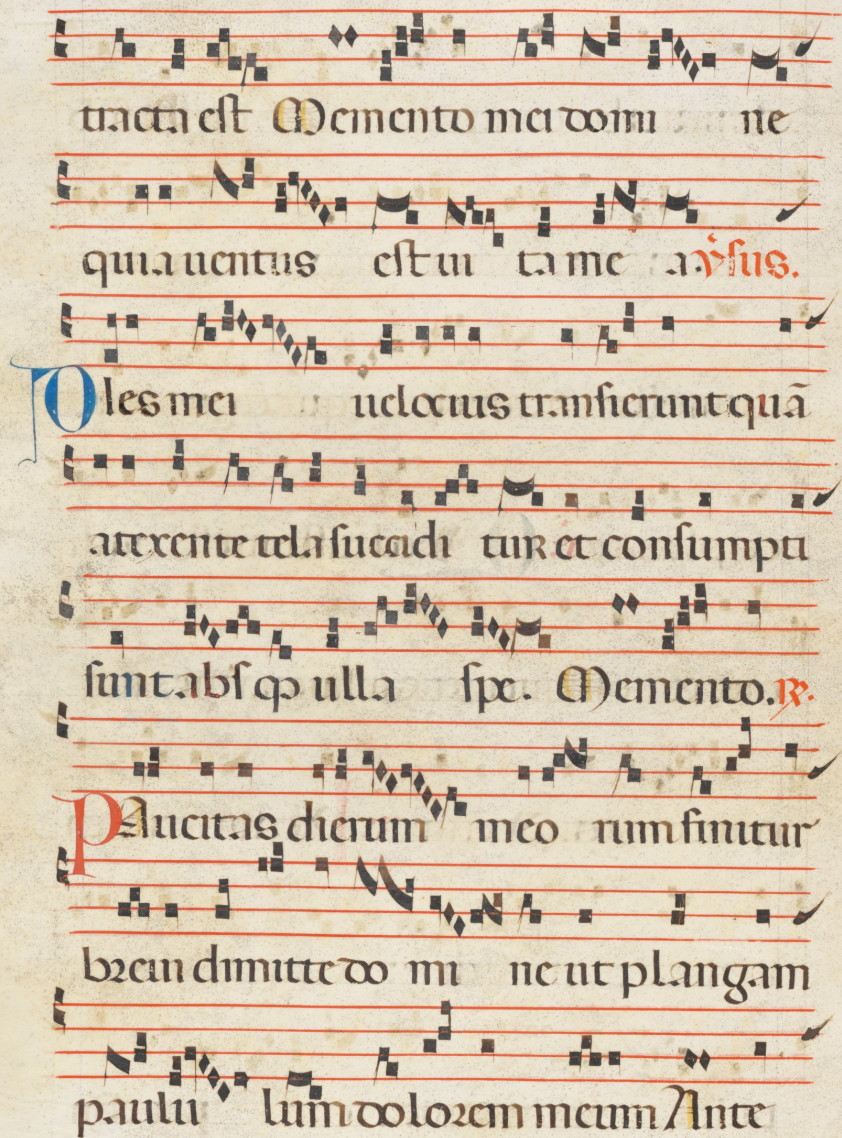 tracta est Memento mei domi ne
quia uentus est ui ta me a. v̓sus.
Dies mei uelocius transierunt quā
a texente tela succidi tur et consumpti
sunt. abs qȝ ulla spe. Memento. ℟.
Paucitas dierum meo rum finitur
breui dimitte do mi ne ut plangam
paulu lum dolorem meum Ante